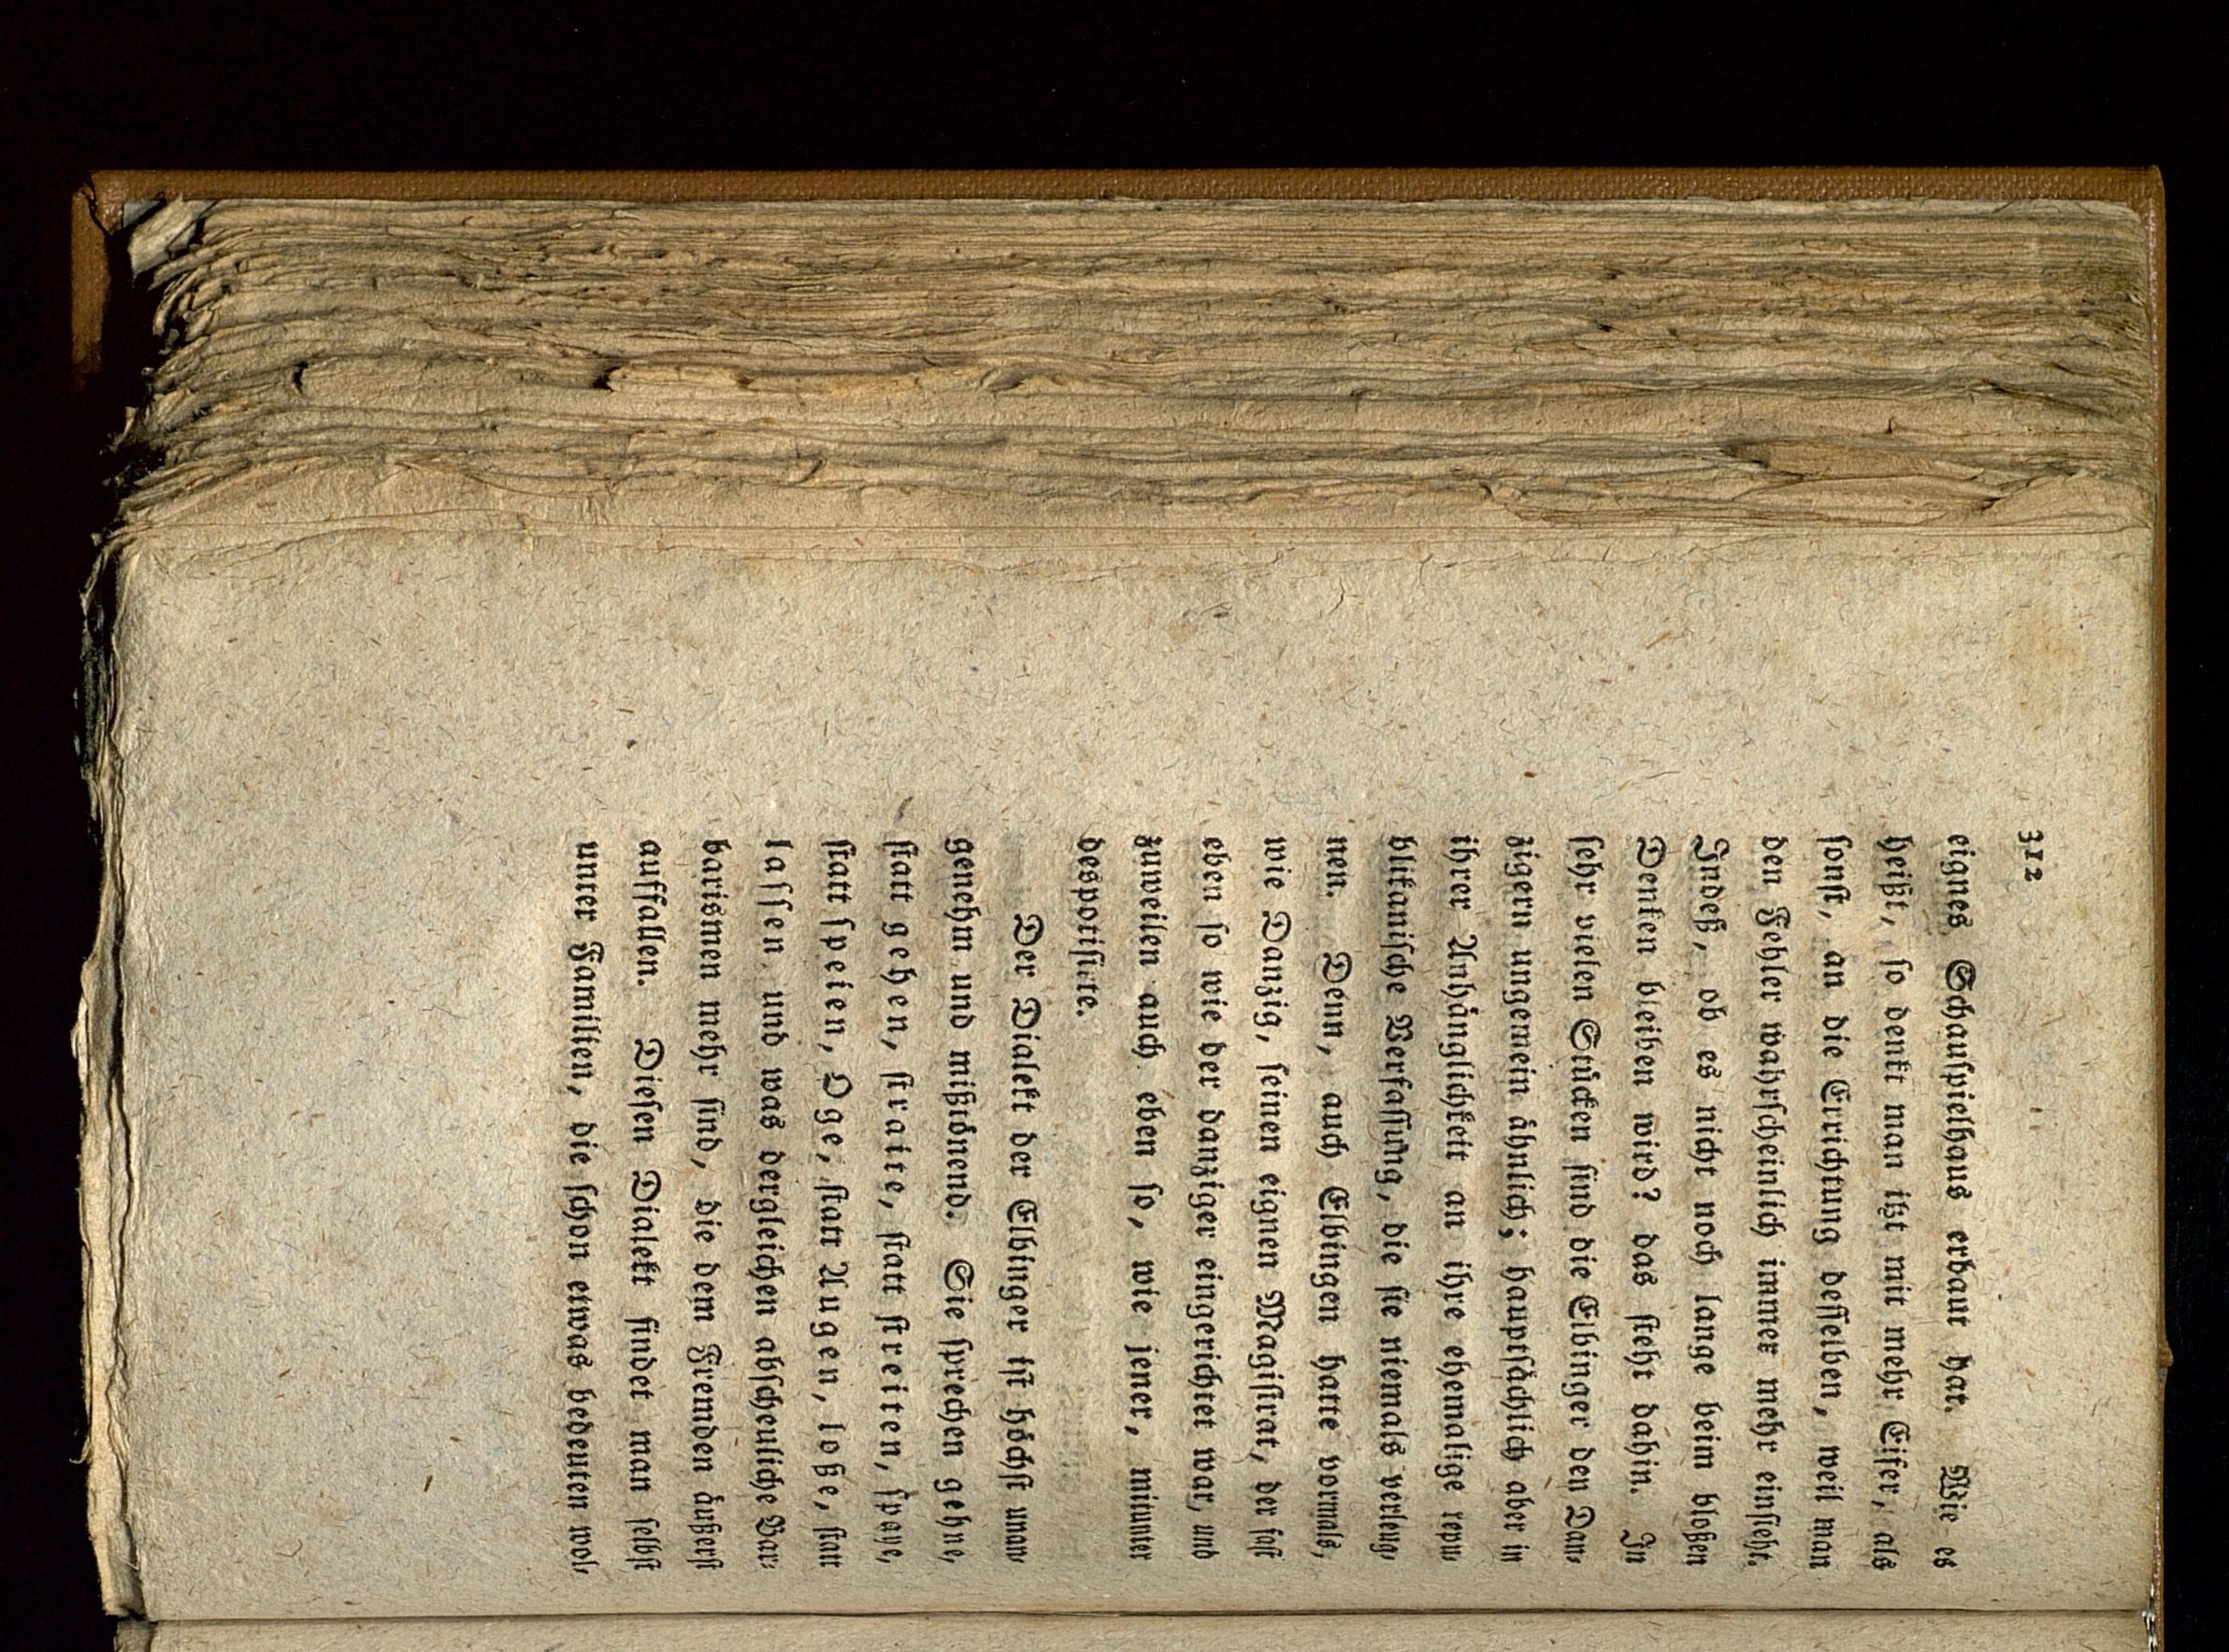 312
eignes Schauſpielhaus erbaut hat. Wie es
heißt, ſo denkt man itzt mit mehr Eifer, als
ſonſt, an die Errichtung deſſelben, weil man
den Fehler wahrſcheinlich immer mehr einſieht.
Indeß, ob es nicht noch lange beim bloßen
Denken bleiben wird? das ſteht dahin. In
ſehr vielen Stücken ſind die Elbinger den Dan-
zigern ungemein ähnlich; hauptſächlich aber in
ihrer Anhänglichkeit an ihre ehemalige repu-
blikaniſche Verfaſſung, die ſie niemals verleug-
nen. Denn, auch Elbingen hatte vormals,
wie Danzig, ſeinen eignen Magiſtrat, der faſt
eben ſo wie der danziger eingerichtet war, und
zuweilen auch eben ſo, wie jener, mitunter
despotiſirte.
Der Dialekt der Elbinger iſt höchſt unan-
genehm und mißtönend. Sie ſprechen gehne,
ſtatt gehen, ſtraite, ſtatt ſtreiten, ſpaye,
ſtatt ſpeien, Oge, ſtatt Augen, loße, ſtatt
laſſen und was dergleichen abſcheuliche Bar-
barismen mehr ſind, die dem Fremden äußerſt
auffallen. Dieſen Dialekt findet man ſelbſt
unter Familien, die ſchon etwas bedeuten wol-